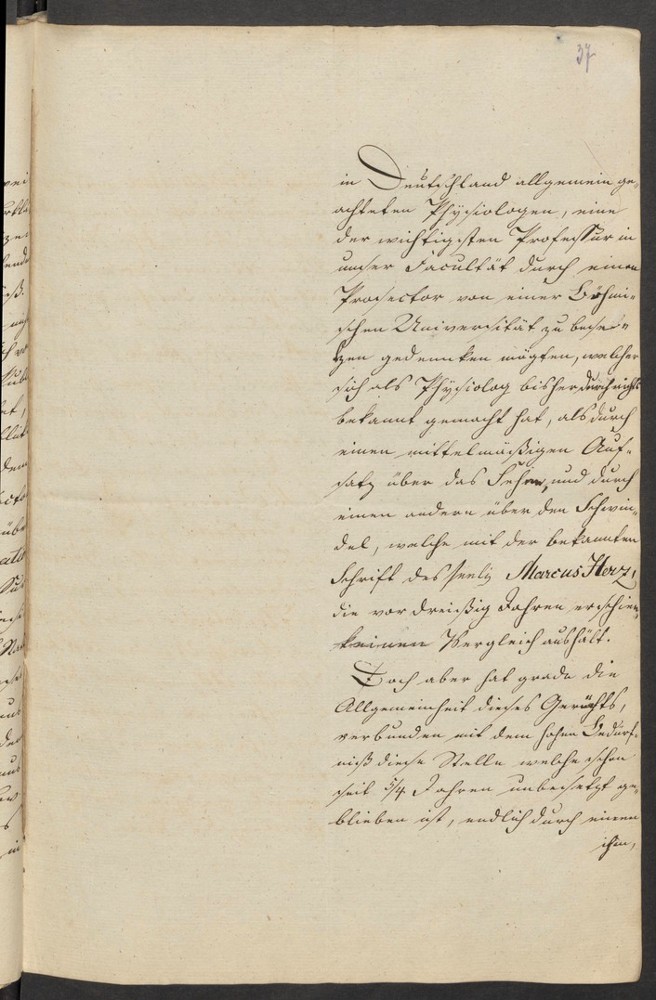 37
in Deutschland allgemein ge-
achteten Physiologen, eine
der wichtigsten Professur in
unser Facultät durch einen
Prosector von einer Böhmi-
schen Universität zu beset-
tzen gedencken mögten, welcher
sich als Physiolog bisher durch nichts
bekannt gemacht hat, als durch
einen mittelmäßigen Auf-
satz über das Sehen, und durch
einen andern über den Schwin-
del, welche mit der bekannten
Schrift des seelig Marcus Herz,
die vor dreißig Jahren erschien,
keinen Vergleich aushält.
Doch aber hat grade die
Allgemeinheit dieses Gerüchts,
verbunden mit dem hohen Bedürf-
niß diese Stelle welche schon
seit 5/4 Jahren unbesetzt ge-
blieben ist, endlich durch einen
ihm,